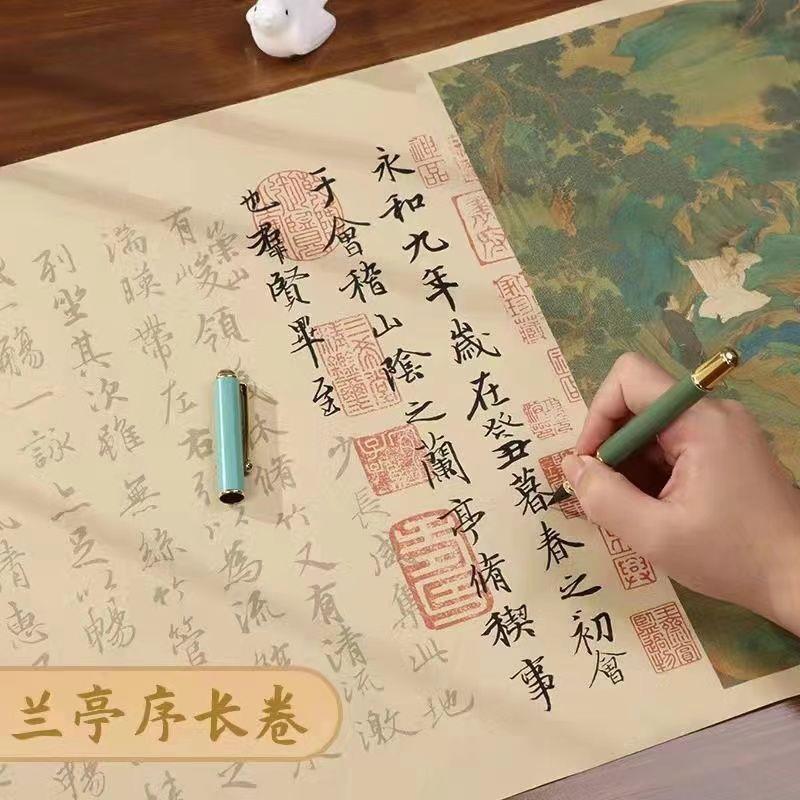 永和九年歲在癸丑暮春之初會
于會稽山陰之蘭亭脩稧事
也羣賢畢至少長咸集此地
有崇山峻領林脩竹又有清流激
湍暎帶左右引以為流水
列坐其次雖無絲竹管之
一觴一詠亦足以暢
清惠暢
神品
兰亭序长卷